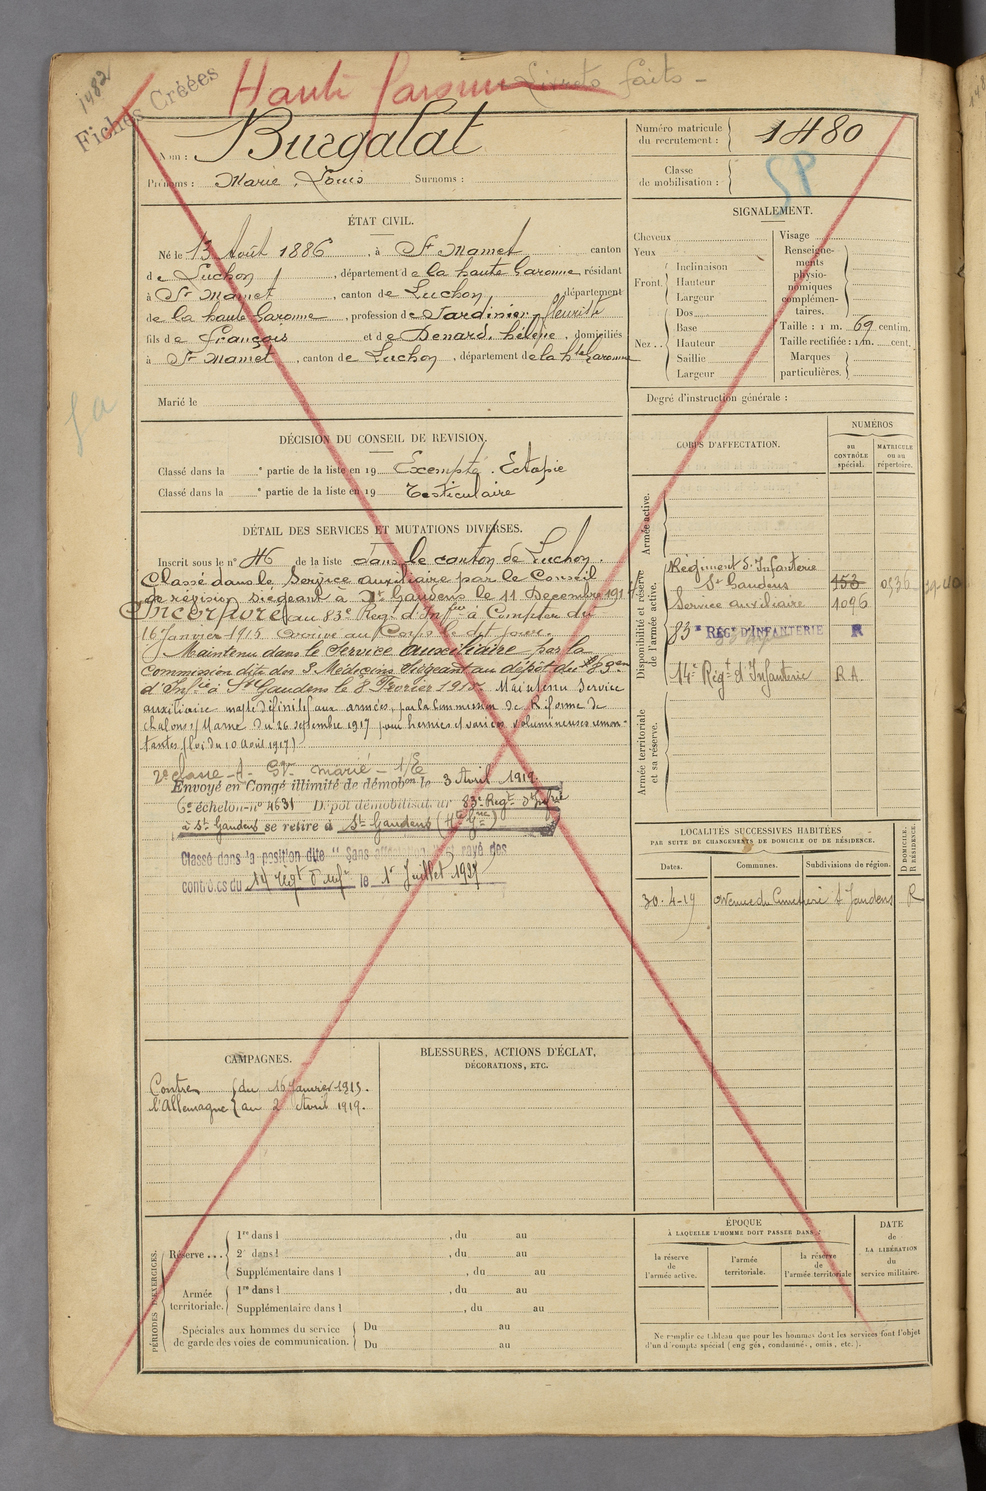 1482
Fiches Créées
Haute Garonne
Livrets faits -
Nom : Burgalat
Prénoms : Marie, Louis Surnoms :
Numéro matricule du recrutement : 1480
Classe de mobilisation :
SP
ÉTAT CIVIL.
Né le 13 Août 1886, à St Mamet canton
de Luchon, département de la haute Garonne, résidant
à St Mamet, canton de Luchon, département
de la haute Garonne, profession de Jardinier fleuriste
fils de François et de Denard, hélène, domiciliés
à St Mamet, canton de Luchon, département de la hte Garonne
Marié le
SIGNALEMENT.
Cheveux
Yeux
Front. Inclinaison
Hauteur
Largeur
Nez.. Dos
Base
Hauteur
Saillie
Largeur
Visage
Renseignements physionomiques complémentaires.
Taille : 1 m. 69 centim.
Taille rectifiée : 1 m. cent.
Marques particulières.
Degré d'instruction générale :
DÉCISION DU CONSEIL DE REVISION.
Classé dans la e partie de la liste en 19 Exempté. Ectopie
Classé dans la e partie de la liste en 19 Testiculaire
DÉTAIL DES SERVICES ET MUTATIONS DIVERSES.
Inscrit sous le n° 46 de la liste dans le canton de Luchon.
Classé dans le Service auxiliaire par le Conseil
de révision siégeant à St Gaudens le 11 Décembre 1914.
Incorporé au 83e Regt d'Infrie à Compter du
16 Janvier 1915. Arrivé au Corps le dit jour.
Maintenu dans le Service auxiliaire par la
Commission dite des 3 Médecins siégeant au dépôt du 83e
d'Infie à St Gaudens le 8 Février 1915. Maintenu Service
auxiliaire inapte définitif aux armées, par la Commission de Réforme de
Chalons s/ Marne du 26 septembre 1917 pour hernies et varices volumineuses remon-
tantes (loi du 10 Août 1917)
2e classe - A - marié -
Envoyé en Congé illimité de démobon le 3 Avril 1919
6e échelon - n° 4631 Dépôt démobilisateur 83e Regt d'Infie
à St Gaudens se retire à St Gaudens (Hte Gne)
Classé dans la position dite "Sans affectation" et rayé des
contrôles du 14e Regt d'Infie le 1er Juillet 1927
CORPS D'AFFECTATION.
NUMÉROS
au CONTRÔLE spécial.
MATRICULE ou au répertoire.
Armée active.
Disponibilité et réserve de l'armée active.
Régiment d'Infanterie
St Gaudens 153
Service auxiliaire 1096
83e RÉGt D'INFANTERIE R
14e Régt d'Infanterie R.A.
Armée territoriale et sa réserve.
LOCALITÉS SUCCESSIVES HABITÉES
PAR SUITE DE CHANGEMENTS DE DOMICILE OU DE RÉSIDENCE.
Dates. Communes. Subdivisions de région. D DOMICILE. R RÉSIDENCE.
30-4-19 Avenue du Cimetière St Gaudens R
CAMPAGNES.
Contre du 16 Janvier 1915.
l'Allemagne au 2 Avril 1919.
BLESSURES, ACTIONS D'ÉCLAT,
DÉCORATIONS, ETC.
PÉRIODES D'EXERCICES.
Réserve... 1re dans l , du au
2e dans l , du au
Supplémentaire dans l , du au
Armée territoriale. 1re dans l , du au
Supplémentaire dans l , du au
Spéciales aux hommes du service Du au
de garde des voies de communication. Du au
ÉPOQUE
À LAQUELLE L'HOMME DOIT PASSER DANS :
la réserve de l'armée active.
l'armée territoriale.
la réserve de l'armée territoriale
DATE de LA LIBÉRATION du service militaire.
Ne remplir ce tableau que pour les hommes dont les services font l'objet
d'un décompte spécial (engagés, condamnés, omis, etc.).